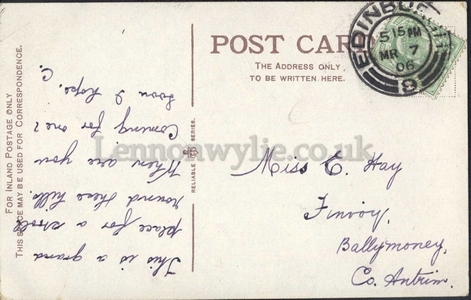 POST CARD
THE ADDRESS ONLY,
TO BE WRITTEN HERE.
FOR INLAND POSTAGE ONLY
THIS SPACE MAY BE USED FOR CORRESPONDENCE.
RELIABLE SERIES.
EDINBURGH
5 15 PM
MR 7
06
8
This is a grand
place for a stroll
round these hills.
When are you
Coming for one?
Soon I hope. C.
Miss C. Hay
Finvoy,
Ballymoney,
Co. Antrim.
Lennonwylie.co.uk